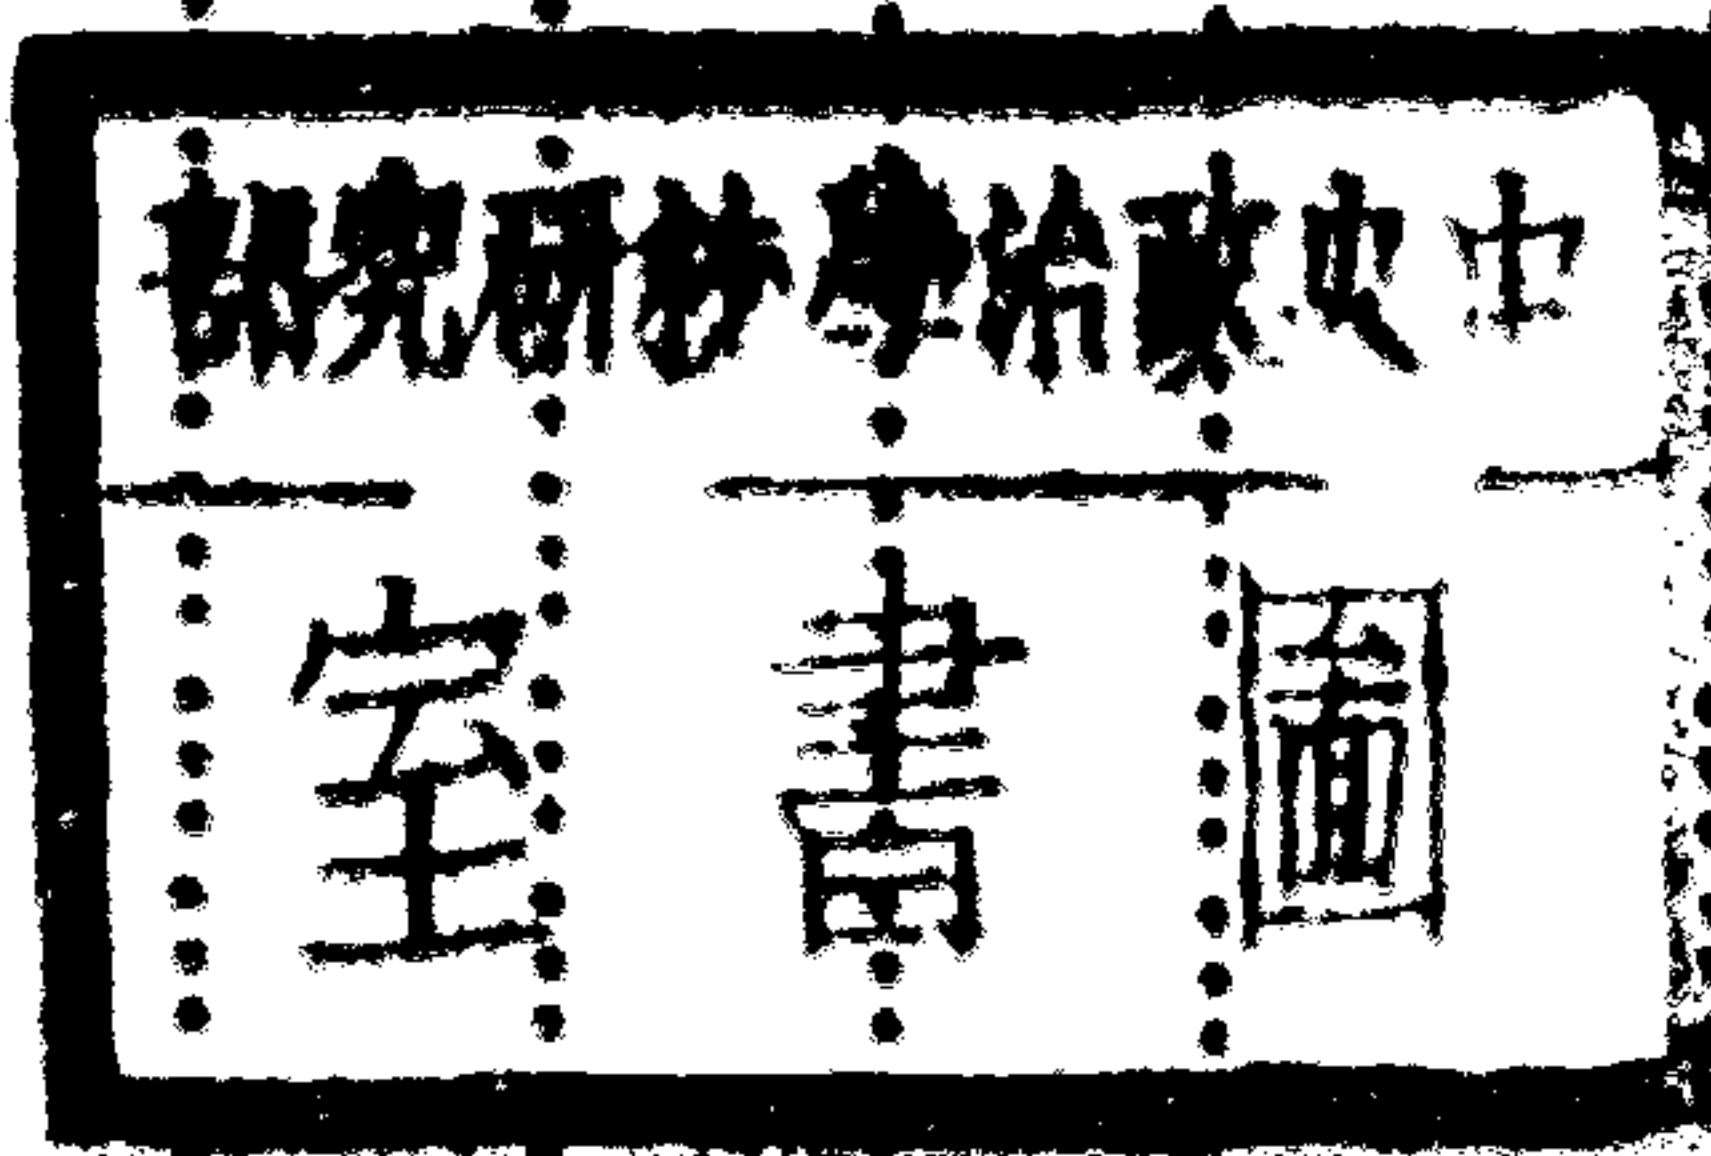 中央政治學校研究部
圖書室